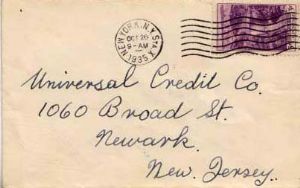 NEW YORK, N.Y. STA.X
OCT 29
9-AM
1935
Universal Credit Co.
1060 Broad St.
Newark.
New Jersey.